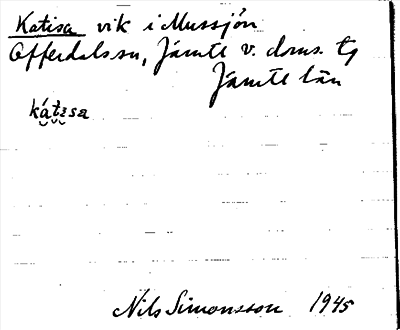 Katisa vik i Mussjön
Offerdals sn, Jämte v. doms. tg
Jämte län
kátisa
Nils Simonsson 1945